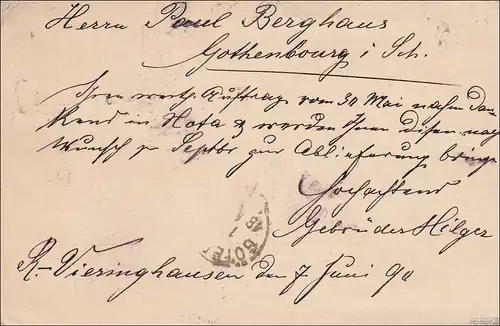 Herrn Paul Berghaus
Gothenbourg i Sch.
Ihren werth. Auftrag vom 30 Mai nahm dan
kend in Nota & werden Ihnen disen nach
Wunsch p Septbr zur Ablieferung bringen
Hochachtend
Gebrüder Hilger
R.-Vieringhausen den 7 Juni 90
GÖTE